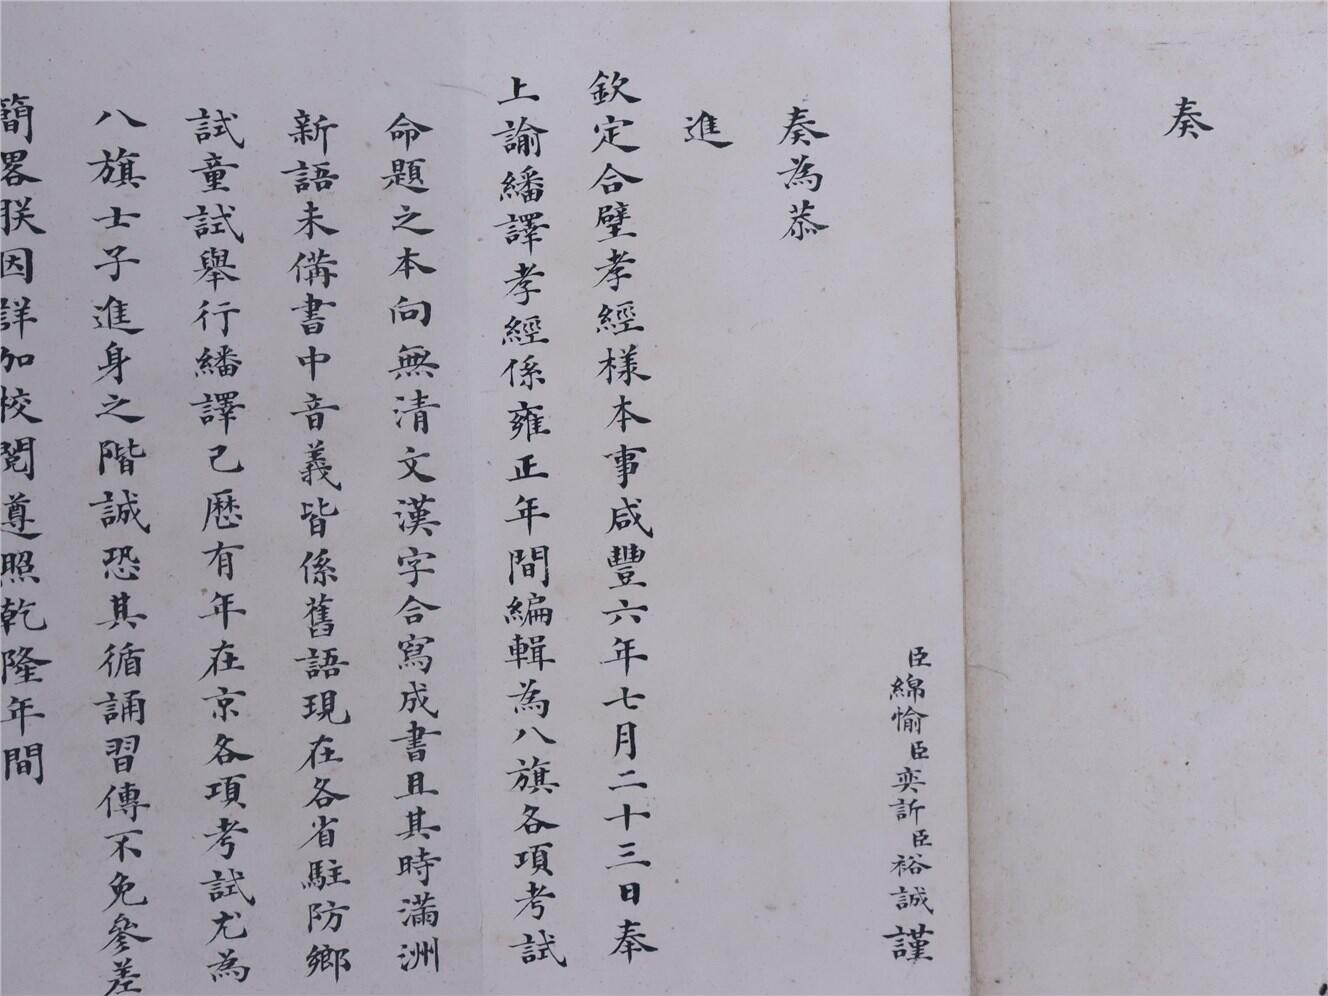 奏
臣綿愉臣奕訢臣裕誠謹
奏為恭
進
欽定合璧孝經樣本事咸豐六年七月二十三日奉
上諭繙譯孝經係雍正年間編輯為八旗各項考試
命題之本向無清文漢字合寫成書且其時滿洲
新語未備書中音義皆係舊語現在各省駐防鄉
試童試舉行繙譯己歷有年在京各項考試尤為
八旗士子進身之階誠恐其循誦習傳不免參差
簡畧朕因詳加校閱遵照乾隆年間